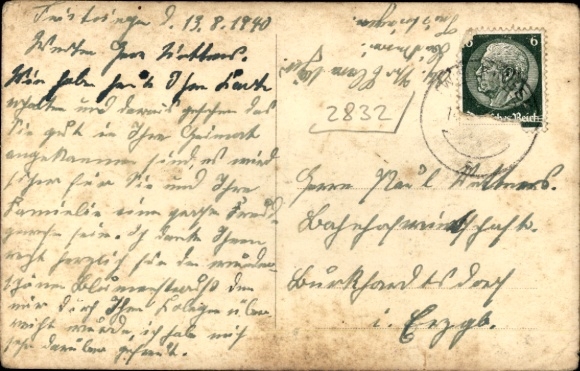 d. 13.8.1940
Werter Herr
Wir haben heute Ihre Karte
erhalten und daraus gesehen das
Sie gut in Ihre Heimat
angekommen sind, es wird
sicher für Sie und Ihre
Familie eine grosse Freude
gewesen sein. Ich danke Ihnen
recht herzlich für den wunder-
schönen Blumenstrauss den
mir durch Ihren Kollegen über-
reicht wurde, ich hab mich
sehr darüber gefreut.
2832
6 6
Deutsches Reich
Herrn Paul
Bahnhofwirtschaft.
Burkhardtsdorf
i. Erzgb.